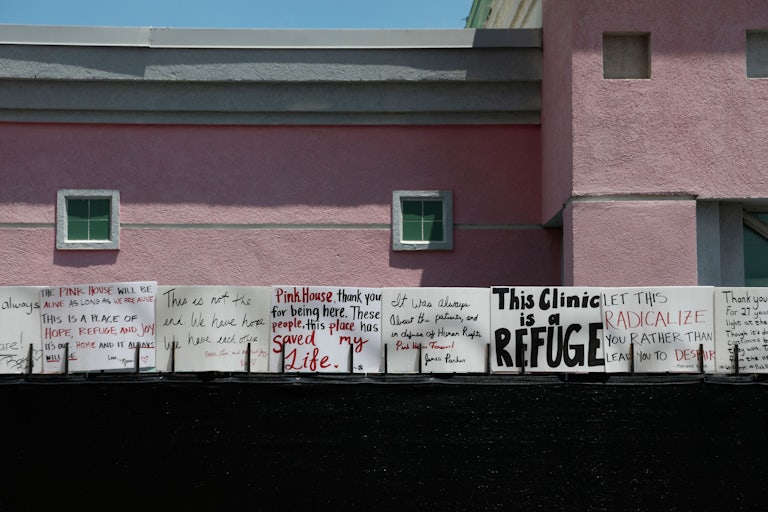 always
THE PINK HOUSE WILL BE
ALIVE AS LONG AS WE ARE ALIVE
THIS IS A PLACE OF
HOPE, REFUGE, AND JOY
IT'S OUR HOME AND IT ALWAYS
WILL BE
This is not the
end We have hope
We have each other
Pink House, thank you
for being here. These
people, this place has
saved my
Life.
It Was always
About the patients, and
in defense of Human Rights
Pink House
James Parker
This Clinic
is a
REFUGE
LET THIS
RADICALIZE
YOU RATHER THAN
LEAD YOU TO DESPAIR
Thank you
For 27 years
light at the